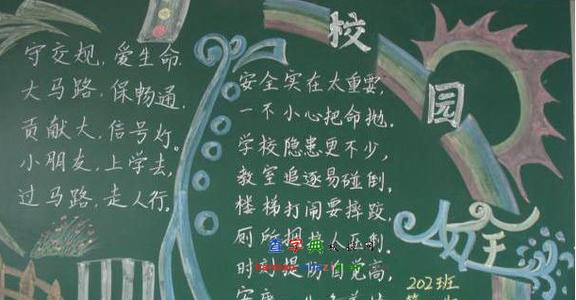 校园
安全
守交规，爱生命.
大马路，保畅通.
贡献大，信号灯.
小朋友，上学去，
过马路，走人行.
安全实在太重要，
一不小心把命抛.
学校隐患更不少，
教室追逐易碰倒.
楼梯打闹要摔跤，
厕所拥挤人
时刻提 自觉高，
查字典
202班